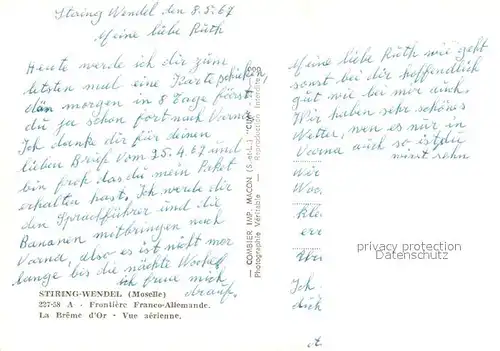 Stiring Wendel den 8.5.67
Meine liebe Ruth
Heute werde ich dir zum
letsten mal eine Karte schicken,
dän morgen in 8 Tage föhrst
du ja schon fort nach Varna.
Ich danke dir für deinen
lieben Brief vom 25.4.67 und
bin froh das du mein Paket
erhalten hast. Ich werde dir
den Sprachführer und die
Bananen mitbringen nach
Varna, also es ist nicht mer
lange bis die nächte Woche
ich freue mich
drauf.
STIRING-WENDEL (Moselle)
227-58 A - Frontière Franco-Allemande.
La Brême d'Or - Vue aérienne.
COMBIER IMP. MACON (S.-et-L.) "CIM"
Photographie Véritable — Reproduction Interdite
Meine liebe Ruth wie geht
sonst bei dir hoffendlich
gut wie bei mir auch.
Wir haben sehr schönes
Wetter, wen es nur in
Varna auch so ist du
wirst sehn
wir
Woc
kle
err
Ich
dich
privacy protection
Datenschutz